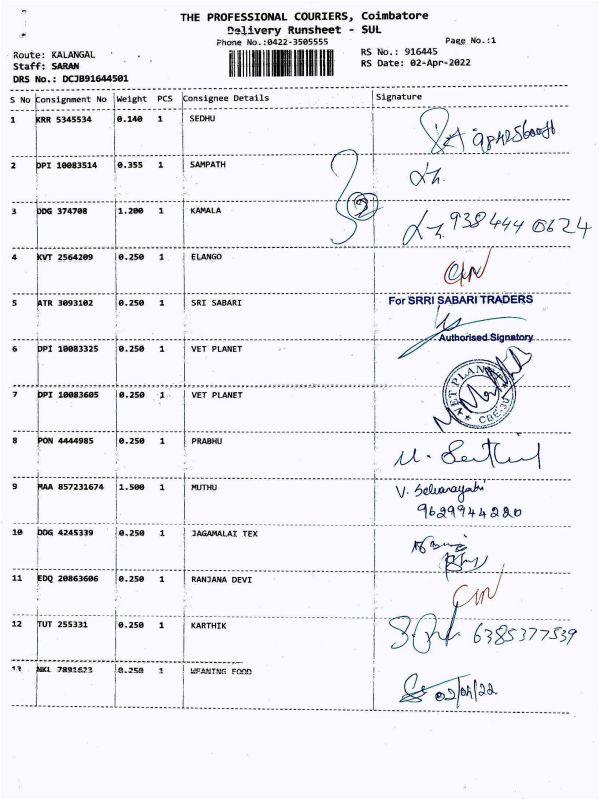 THE PROFESSIONAL COURIERS, Coimbatore
Delivery Runsheet - SUL
Phone No.:0422-3505555
Page No.:1
Route: KALANGAL
RS No.: 916445
Staff: SARAN
RS Date: 02-Apr-2022
DRS No.: DCJB91644501
S No Consignment No Weight PCS Consignee Details Signature
1 KRR 5345534 0.140 1 SEDHU
2 DPI 10083514 0.355 1 SAMPATH
3 DDG 374708 1.200 1 KAMALA 938 444 0624
4 KVT 2564209 0.250 1 ELANGO
5 ATR 3093102 0.250 1 SRI SABARI For SRRI SABARI TRADERS
Authorised Signatory
6 DPI 10083325 0.250 1 VET PLANET
7 DPI 10083605 0.250 1 VET PLANET
VET PLANET
8 PON 4444985 0.250 1 PRABHU
9 MAA 857231674 1.500 1 MUTHU V.
9629944220
10 DDG 4245339 0.250 1 JAGAMALAI TEX
11 EDQ 20863606 0.250 1 RANJANA DEVI
12 TUT 255331 0.250 1 KARTHIK 6385377539
13 NKL 7891623 0.250 1 WEANING FOOD
02/04/22